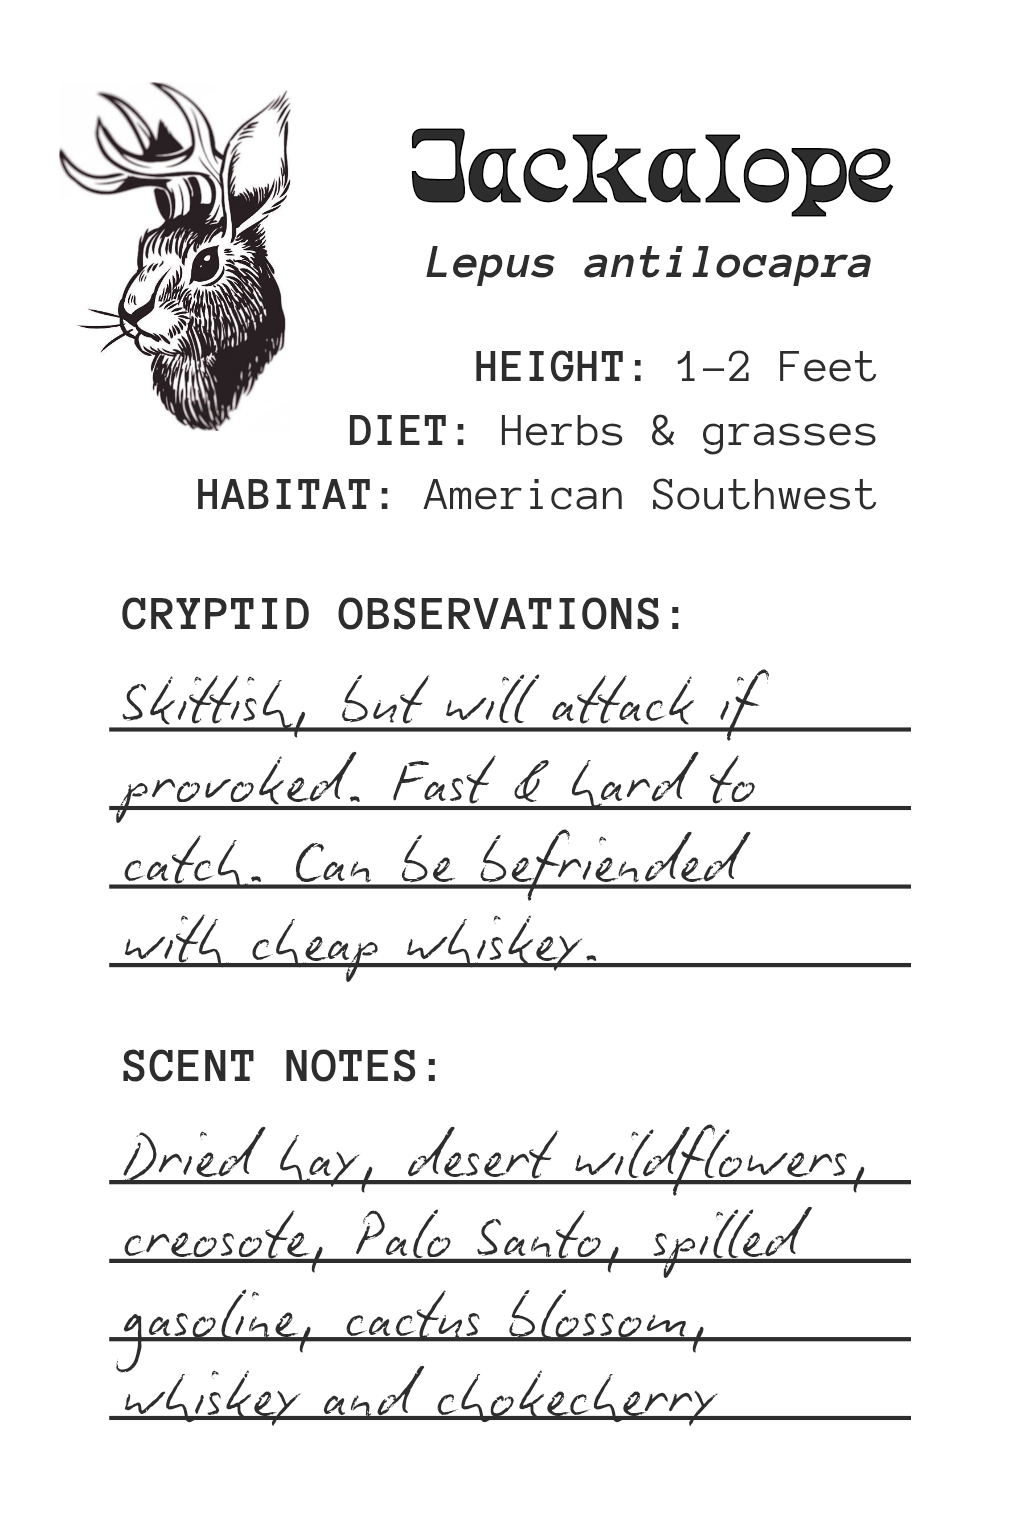 Jackalope
Lepus antilocapra
HEIGHT: 1-2 Feet
DIET: Herbs & grasses
HABITAT: American Southwest
CRYPTID OBSERVATIONS:
Skittish, but will attack if
provoked. Fast & hard to
catch. Can be befriended
with cheap whiskey.
SCENT NOTES:
Dried hay, desert wildflowers,
creosote, Palo Santo, spilled
gasoline, cactus blossom,
whiskey and chokecherry